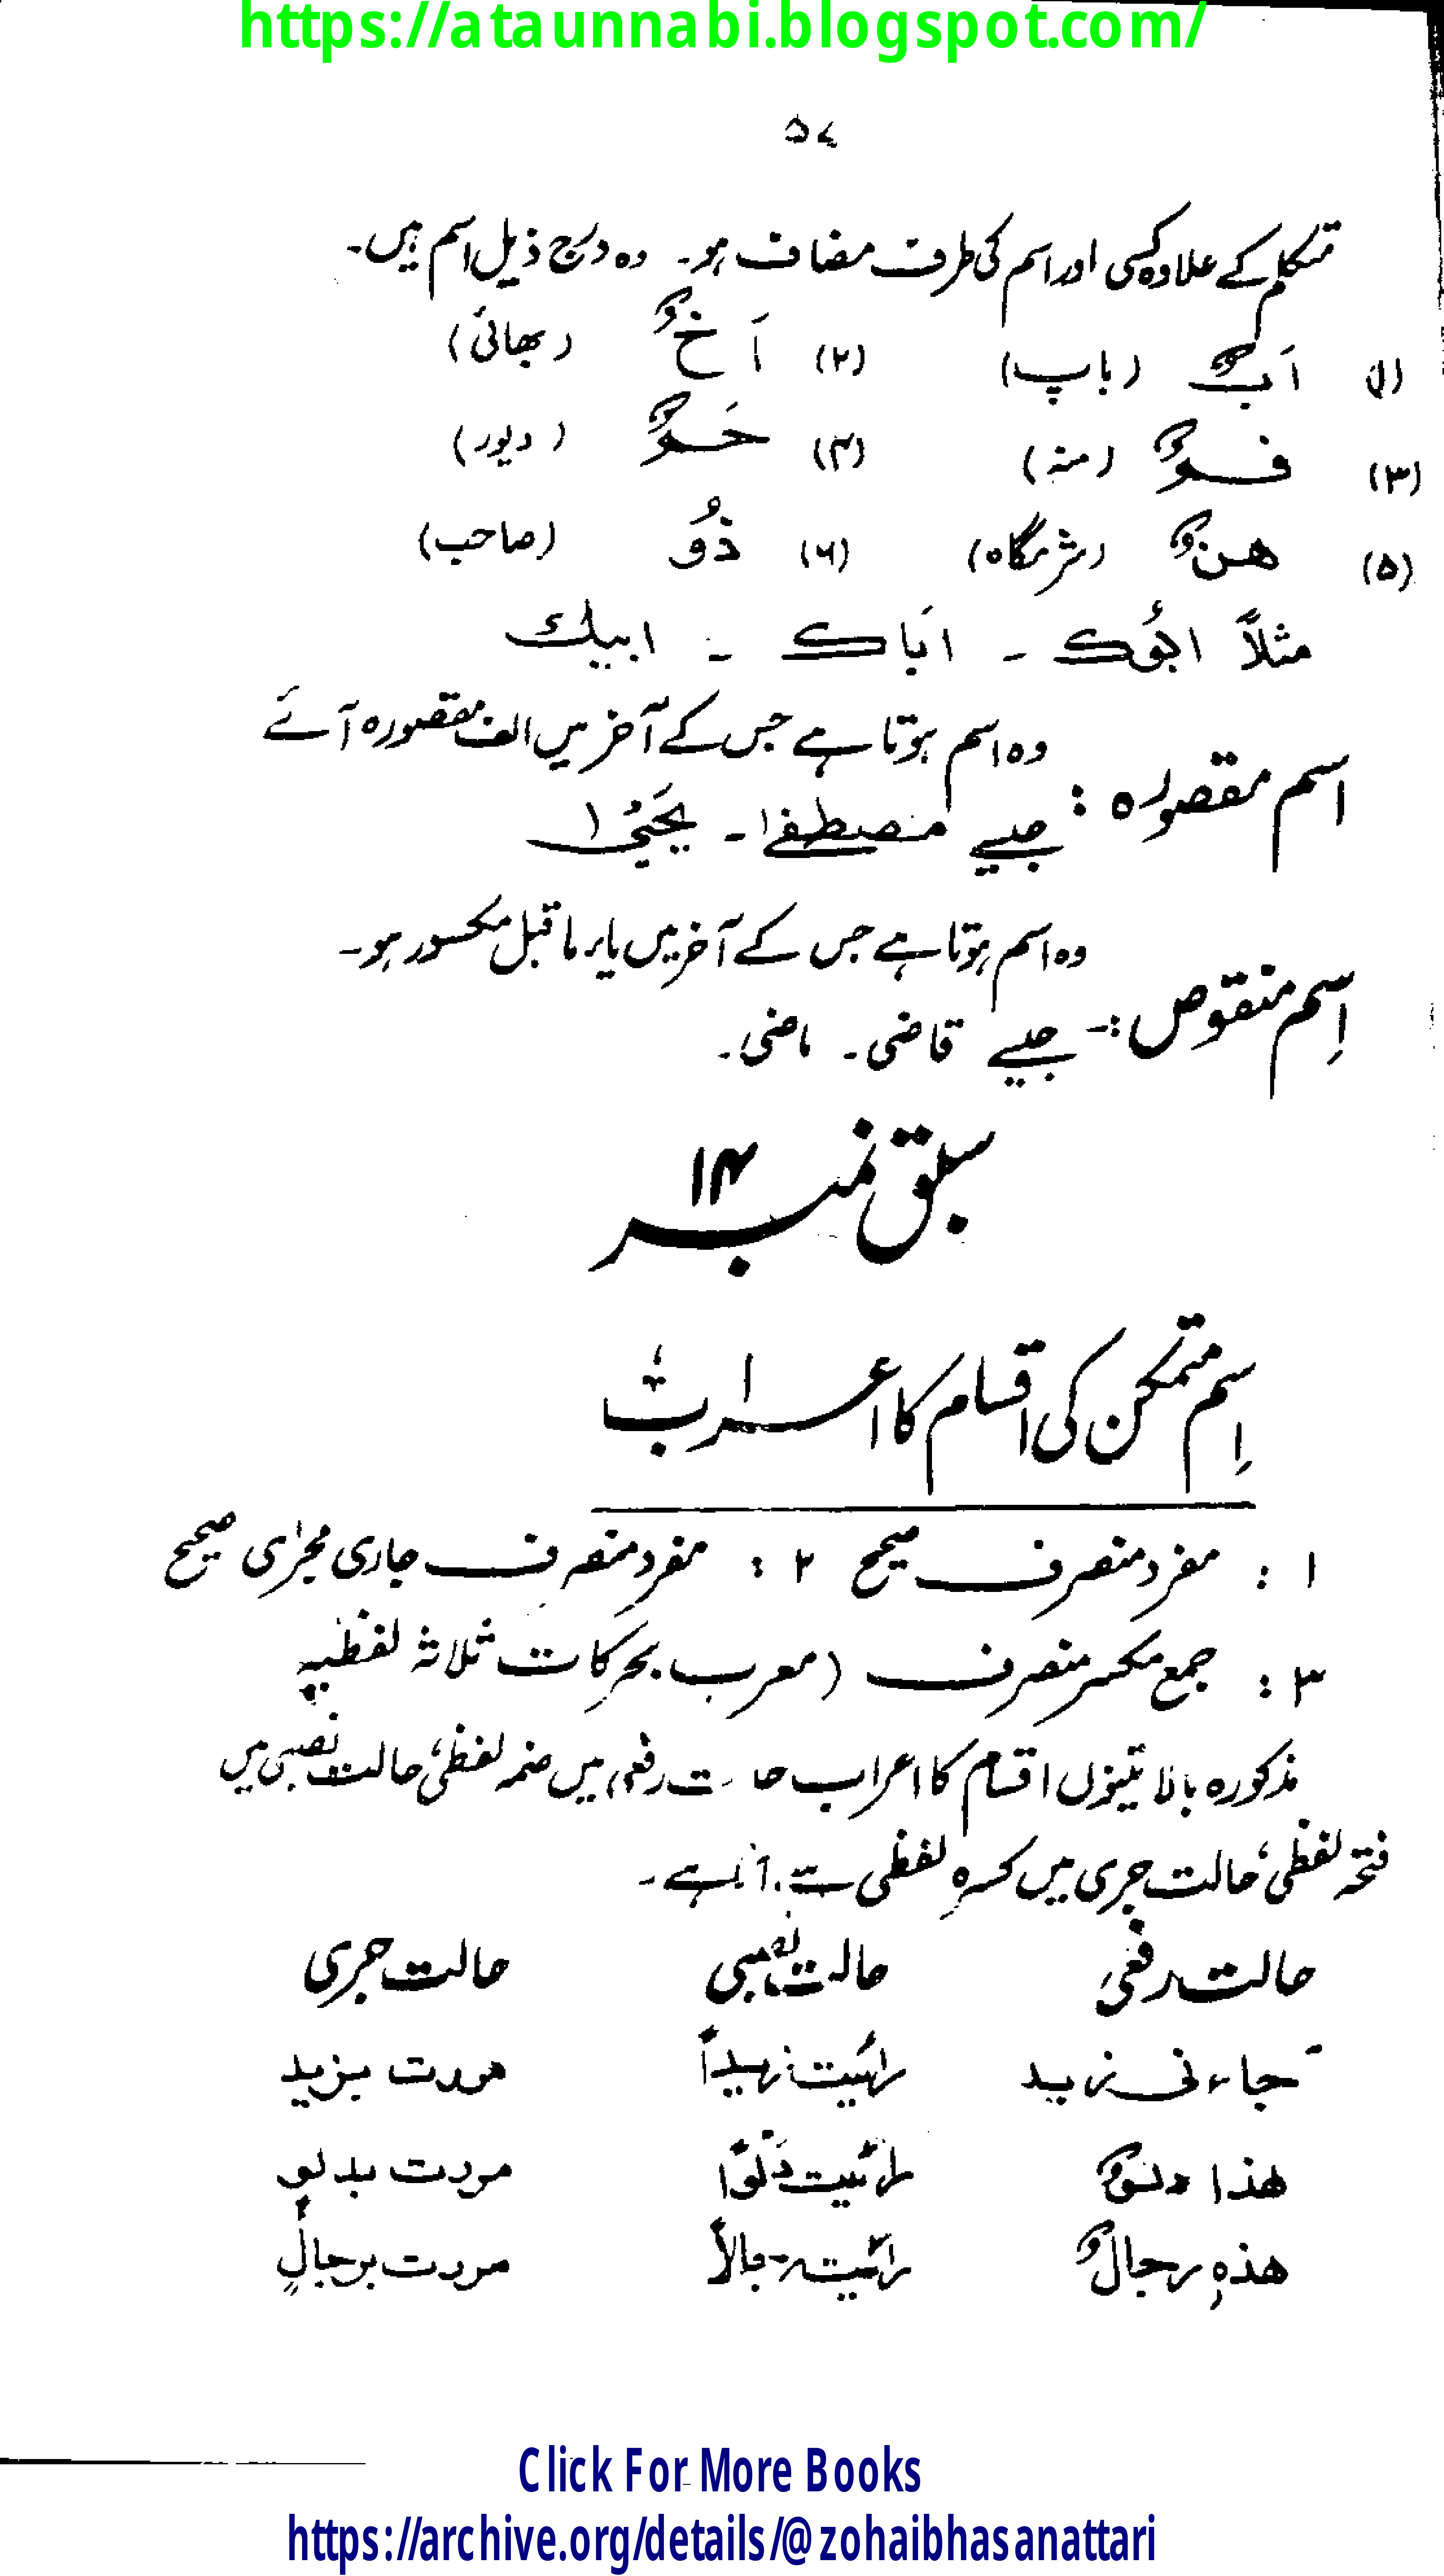 https://ataunnabi.blogspot.com/
۵۷
متکلم کے علاوہ کسی اور اسم کی طرف مضاف ہو۔ وہ درج ذیل اسم ہیں۔
(۱) اَبٌ (باپ) (۲) اَخٌ (بھائی)
(۳) فمٌ (منہ) (۴) حَمٌ (دیور)
(۵) ھنٌ (شرمگاہ) (۶) ذُو (صاحب)
مثلاً ابوُک ۔ اَباک ۔ ابیك
وہ اسم ہوتا ہے جس کے آخر میں الف مقصورہ آئے
اسم مقصورہ :
جیسے مصطفےٰ ۔ یَحیٰی
وہ اسم ہوتا ہے جس کے آخر میں یاء ما قبل مکسور ہو۔
اِسم منقوص :-
جیسے قاضی ۔ ماضی ۔
سبق نمبر ۱۴
اِسم متمکن کی اقسام کا اعراب
۱ : مفرد منصرف صحیح ۲ : مفرد منصرف جاری مجرٰی صحیح
۳ : جمع مکسر منصرف (معرب بحرکات ثلاثہ لفظیہ
مذکورہ بالا تینوں اقسام کا اعراب حالت رفعی میں ضمہ لفظی، حالت نصبی میں
فتحہ لفظی، حالت جری میں کسرہ لفظی سے آتا ہے۔
حالت رفعی حالت نصبی حالت جری
جاءنی زید رائیت زیداً مررت بزید
ھذا دلوٌ رائیت دَلوًا مررت بدلوٍ
ھذہٖ رجالٌ رائیت رجالاً مررت برجالٍ
Click For More Books
https://archive.org/details/@zohaibhasanattari